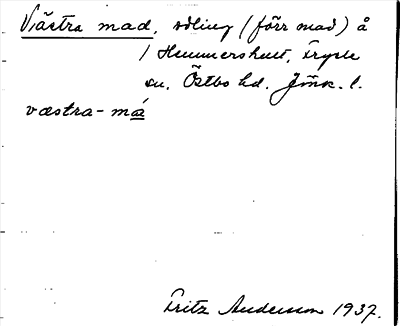 Västra mad, odling (förr mad) å
/ Hemmershult, Tryde
sn. Östbo hd. Jönk. l.
væstra-má
Fritz Andersson 1937.